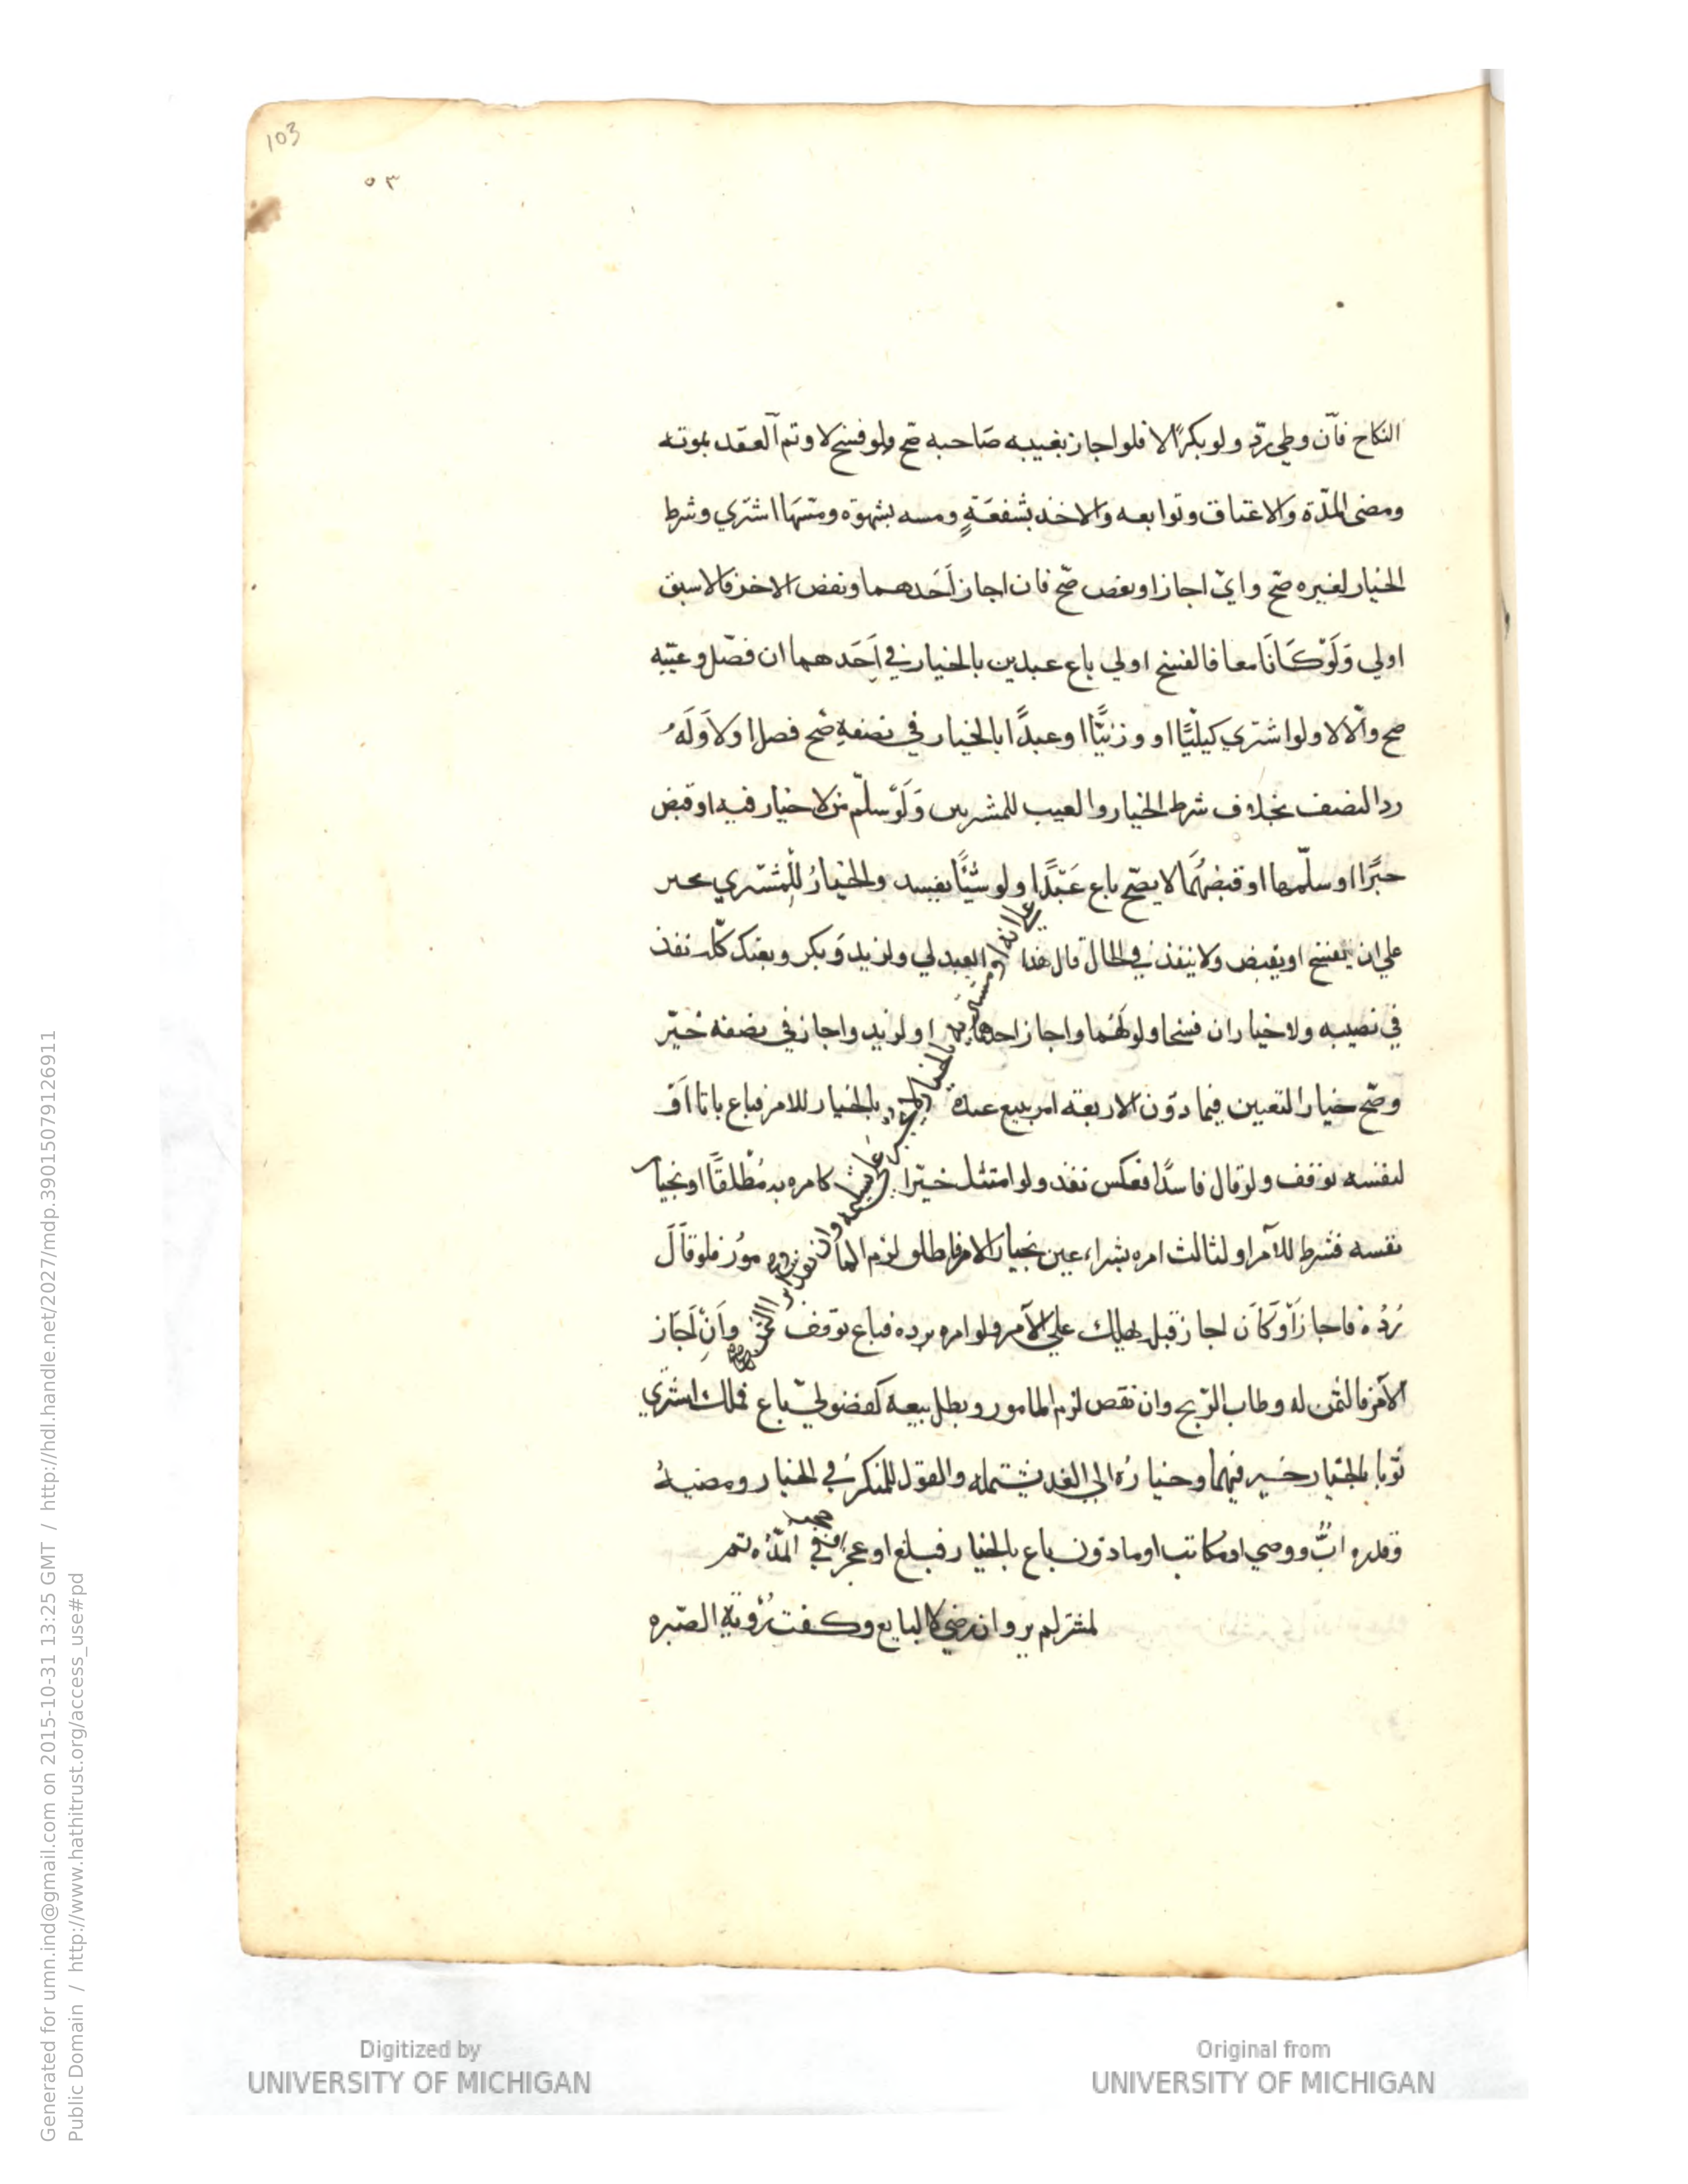 103
٥٣
النكاح فان وطي ردّ ولو بكرًا لا فلو اجاز بغيبه صاحبه صح ولو فسخ لا وتم العقد بموته
ومضى المدّة والاعتاق وتوابعه والاخذ بشفعةٍ ومسه بشهوة ومسّها اشتري وشرط
الخيار لغيره صحّ واي اجاز او نقض صحّ فان اجاز اَحَدهما ونقض الاخر فالاسبق
اولي وَلَوْ كَانَا معا فالفسخ اولي باع عبدين بالخيار في اَحَدهما ان فصّل وعيّنه
صح والّا لا ولو اشتري كيليًّا او وزنيًّا او عبدًا بالخيار في نصفهِ صّح فصل او لا وَلَهُ
رد النصف بخلاف شرط الخيار والعيب للمشريين وَلَوْ سلّم من لا خيار فيه او قبض
جبرًا او سلّمها او قبضهُمَا لا يصّح باع عَبْدًا ولو شيئًا يفسد والخيارُ للمُشتري
علي ان يفسخ او يقبض ولا ينفذ في الحال قال هذا العبد لي ولزيد وَبكر وبعتك كلّه نفذ
في نصيبه ولا خيار ان فسخا ولو لهُما واجاز احدهما او لزيد واجاز في نصفه خيّر
وصّح خيار التعيين فيما دوْن الاربعة امر ببيع عبده بالخيار للامر فباع باتا اَوْ
لنفسه توقف ولو قال فاسدًا فعكس نفذ ولو امتثل خيّرا كامره به مُطْلقًا او بخيار
نفسه فشرط للآمر او لثالث امره بشراء عين بخيار الامر فاطلق لزم المأمُوْر فلو قاَلَ
رُدُه فاجاز اَوْ كَاَن اجاز قبل يهلك علي الآمر ولو امره برده فباع توقف واَنِ اَجَاز
الآمر فالثمن له وطاب الرّبح وان نقص لزم المامور وبطل بيعه كفضوليّ باع فملك اشتري
ثوبا بالخيار خير فيهما وخيارُه الي الغد يشتمله والقول للمنكر في الخيار ومضيهُ
وقدره ابٌ ووصي او مكاتب او ماذون باع بالخيار فبلغ او عجز في المدّه تم
لمشتر لم ير وان رضي لا البايع وكفت رُؤية الصّبره
Generated for umn.ind@gmail.com on 2015-10-31 13:25 GMT / http://hdl.handle.net/2027/mdp.39015079126911
Public Domain / http://www.hathitrust.org/access_use#pd
Digitized by
UNIVERSITY OF MICHIGAN
Original from
UNIVERSITY OF MICHIGAN